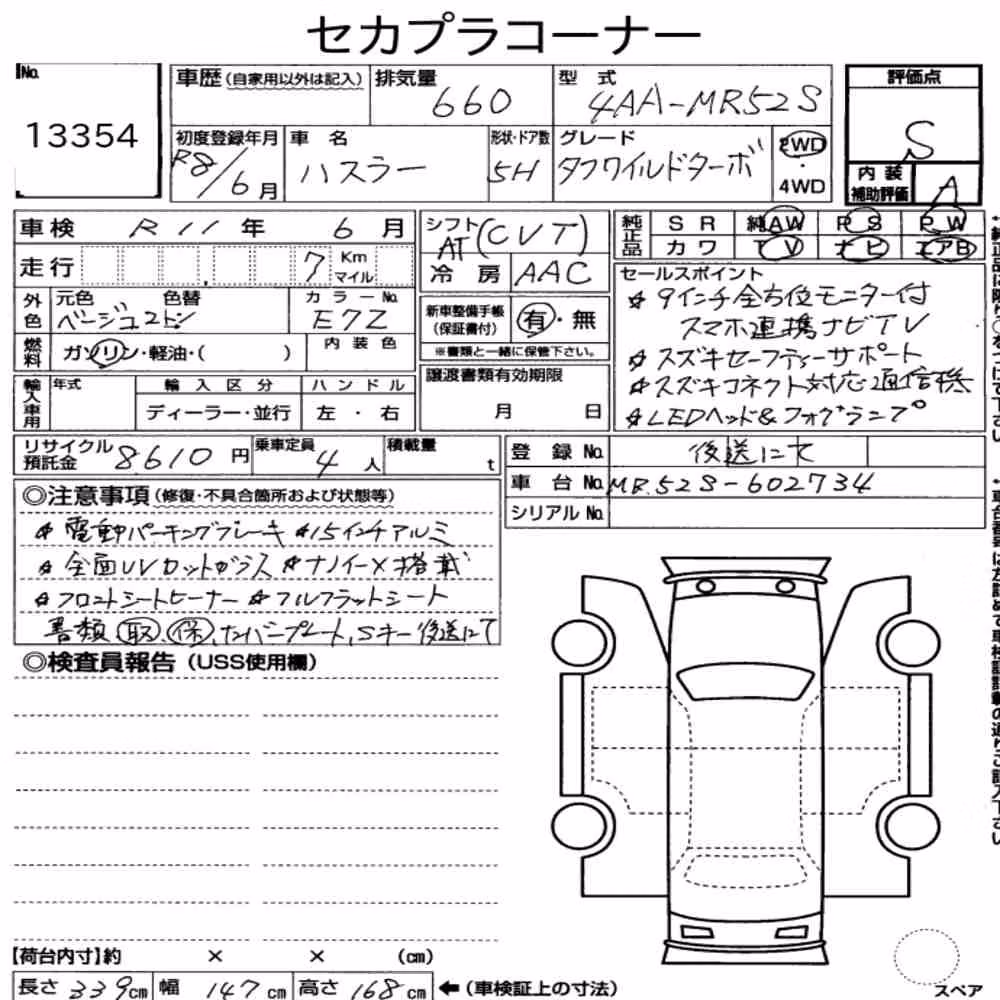 セカプラコーナー
No.
13354
車歴(自家用以外は記入)
排気量
660
型 式
4AA-MR52S
評価点
S
内装
補助評価
A
初度登録年月
R8/6月
車 名
ハスラー
形状・ドア数
5H
グレード
タフワイルドターボ
2WD
・
4WD
車検 R11年 6月
シフト
AT(CVT)
純正品
SR 純AW PS PW
カワ TV ナビ エアB
走行 7 Km
マイル
冷房 AAC
セールスポイント
☆9インチ全方位モニター付
スマホ連携ナビTV
☆スズキセーフティーサポート
☆スズキコネクト対応通信機
☆LEDヘッド&フォグランプ
外色
元色 色替
ベージュ2トン
カラーNo.
E7Z
新車整備手帳
(保証書付)
有・無
※書類と一緒に保管下さい。
燃料
ガソリン・軽油・( )
内装色
輸入車用
年式
輸入区分
ディーラー・並行
ハンドル
左・右
譲渡書類有効期限
月 日
リサイクル
預託金
8610円
乗車定員
4人
積載量
t
登録No. 後送にて
車台No. MR52S-602734
シリアルNo.
◎注意事項(修復・不具合箇所および状態等)
☆電動パーキングブレーキ ☆15インチアルミ
☆全面UVカットガラス ☆ナノイーX搭載
☆フロントシートヒーター ☆フルフラットシート
書類(取)、(保)、ナンバープレート、Sキー後送にて
◎検査員報告(USS使用欄)
【荷台内寸】約 × × (cm)
長さ 339cm 幅 147cm 高さ 168cm
←(車検証上の寸法)
スペア